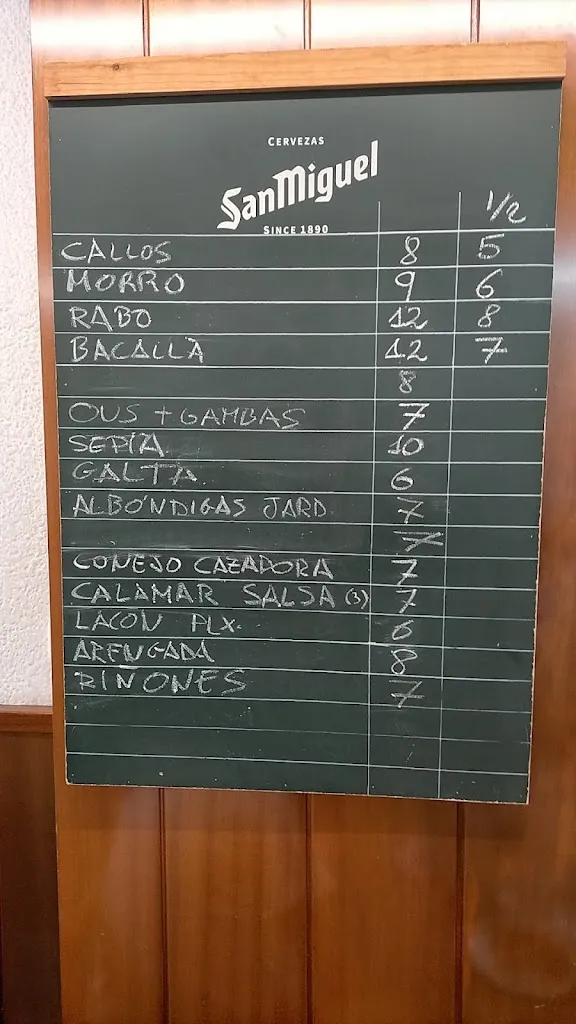 CERVEZAS
San Miguel
SINCE 1890
1/2
CALLOS 8 5
MORRO 9 6
RABO 12 8
BACALLÀ 12 7
8
OUS + GAMBAS 7
SEPIA 10
GALTA 6
ALBÓNDIGAS JARD. 7
7
CONEJO CAZADORA 7
CALAMAR SALSA (3) 7
LACON PLX. 6
ARENGADA 8
RIÑONES 7